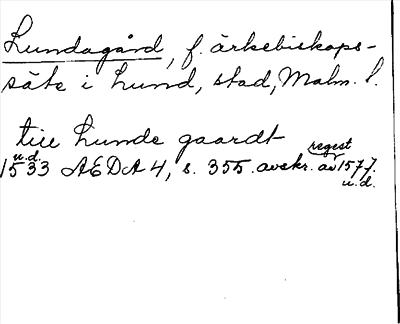 Lundagård, f. ärkebiskops-
säte i Lund, stad, Malm. l.
till Lunde gaardt
u.d. regest
1533 AEDA 4, s. 355. avskr. av 1577.
u.d.